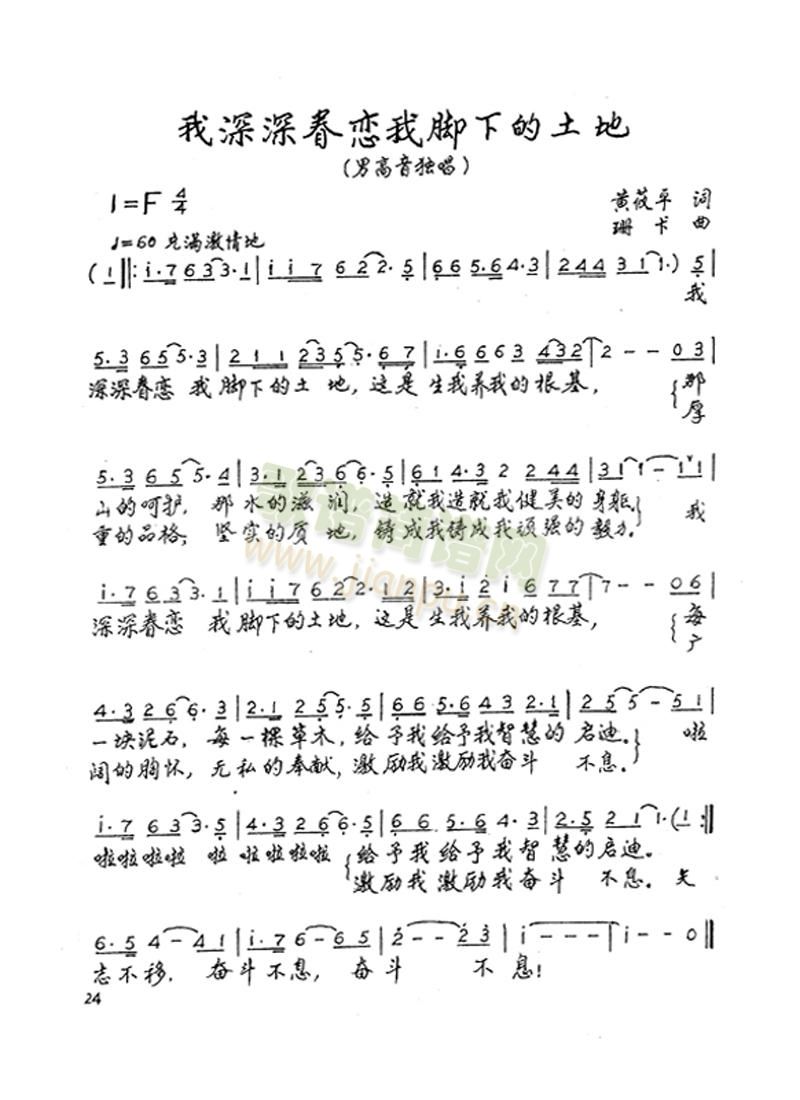 我深深眷恋我脚下的土地
(男高音独唱)
1=F 4/4
黄莜平 词
珊卡 曲
♩=60 充满激情地
(1‖:i·7 633·1|ii7 622·5|665·64·3|244 311·)5|
我
5·3 655·3|211 2355·67|1·6663 4322|2--03|
深深眷恋 我脚下的土地,这是生我养我的根基, {那
厚
5·3 655·4|3·1 2366·5|614·32 244|311-11|
山的呵护, 那水的滋润, 造就我造就我健美的身躯} 我
重的品格; 坚实的质地, 铸成我铸成我顽强的毅力.
i·7 633·1|ii7622·12|3·i2i677|7--06|
深深眷恋 我脚下的土地,这是生我养我的根基, {每
广
4·3 266·3|2·1 255·5|665·643 2·1|255-51|
一块泥石, 每一棵草木,给予我给予我智慧的启迪.} 啦
阔的胸怀, 无私的奉献,激励我激励我奋斗 不息.
i·7 633·5|4·3 266·5|66 5·6 4·3|2·5 211·(1:‖
啦啦啦啦 啦 啦啦啦啦 {给予我给予我智慧的启迪.
激励我激励我奋斗 不息. 矢
6·5 4-41|i·7 6-65|2--23|i---|i--0‖
志不移, 奋斗不息, 奋斗 不息!
24
歌谱简谱网
www.jianpu.cn